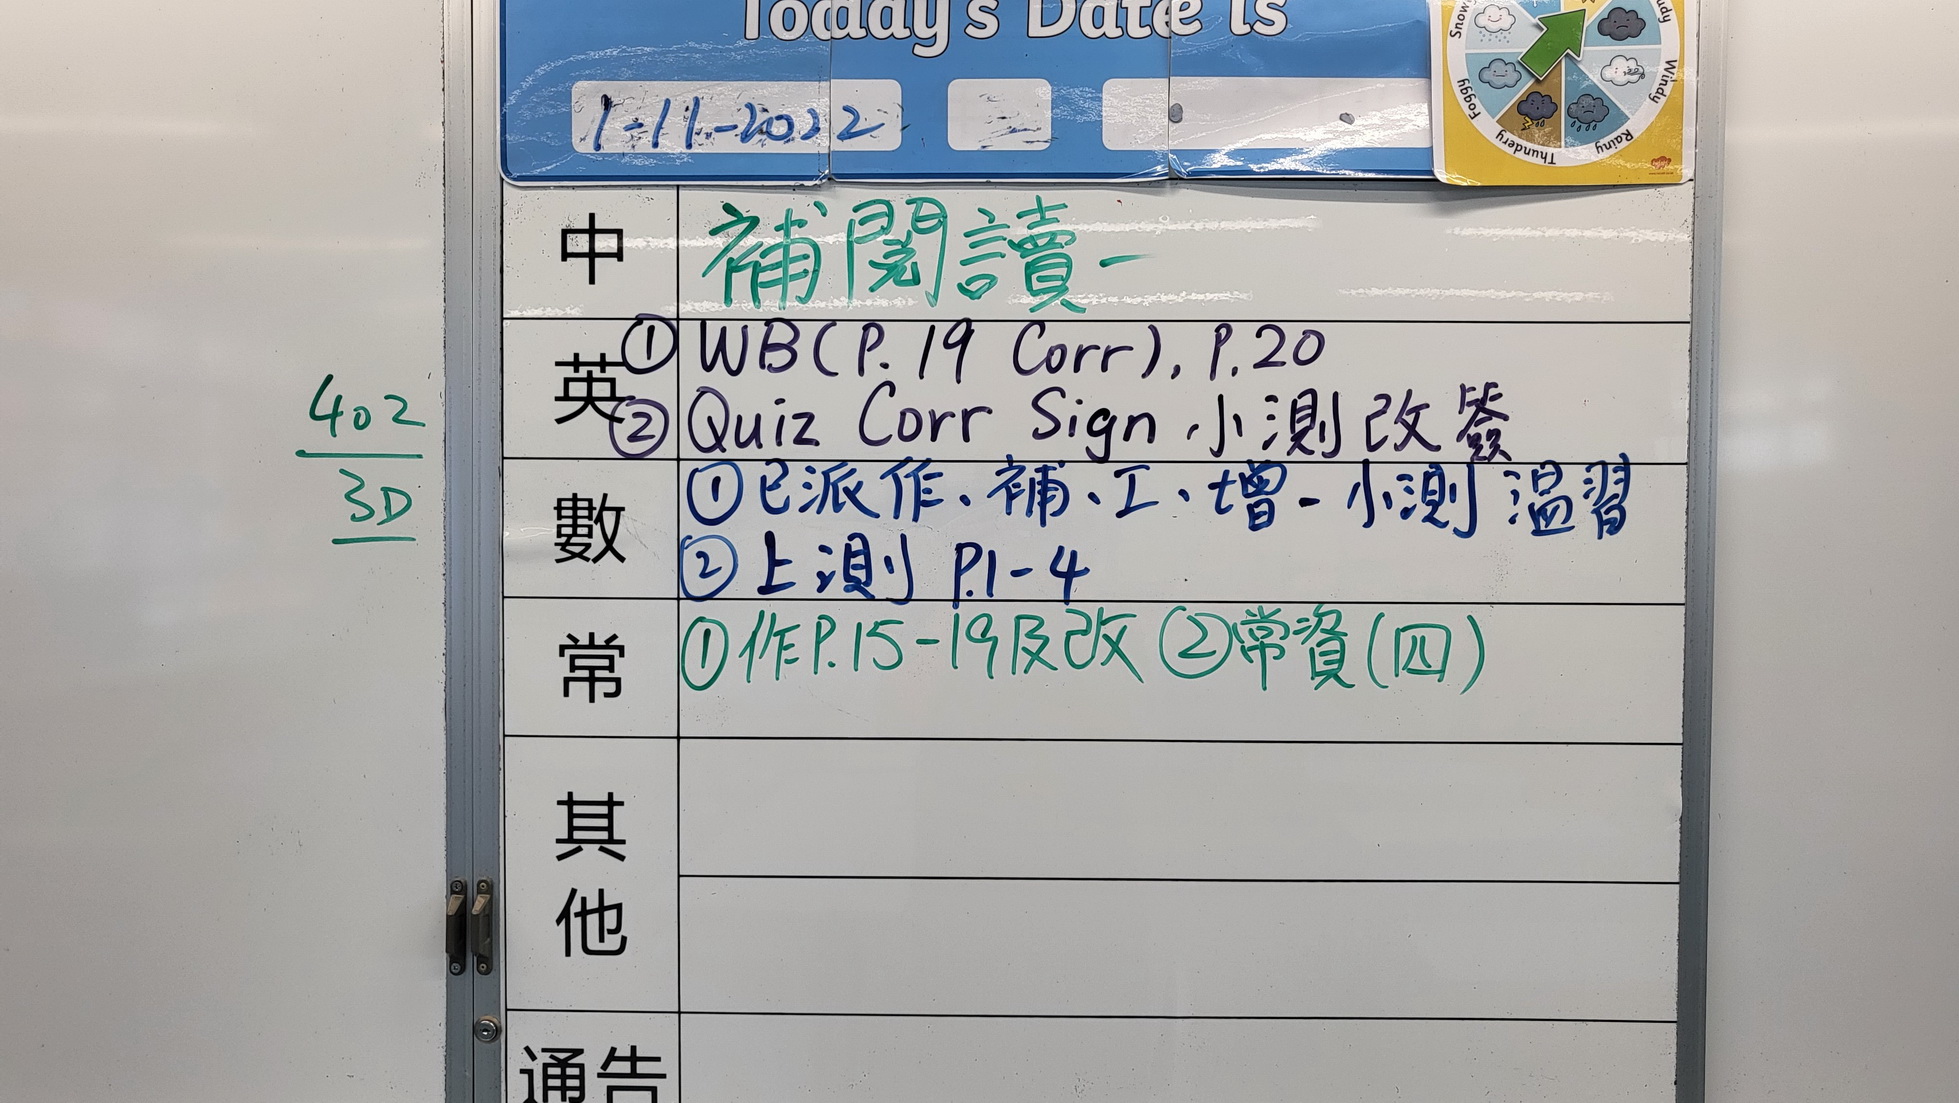 Today's Date is
1-11-2022
Snow
Foggy
Thundery
Rainy
Windy
中 補閱讀一
英 ① WB(P.19 Corr), P.20
② Quiz Corr Sign 小測改簽
數 ①已派作、補、工、增-小測溫習
②上測 P.1-4
常 ①作P.15-19及改 ②常資(四)
其他
通告
402
3D